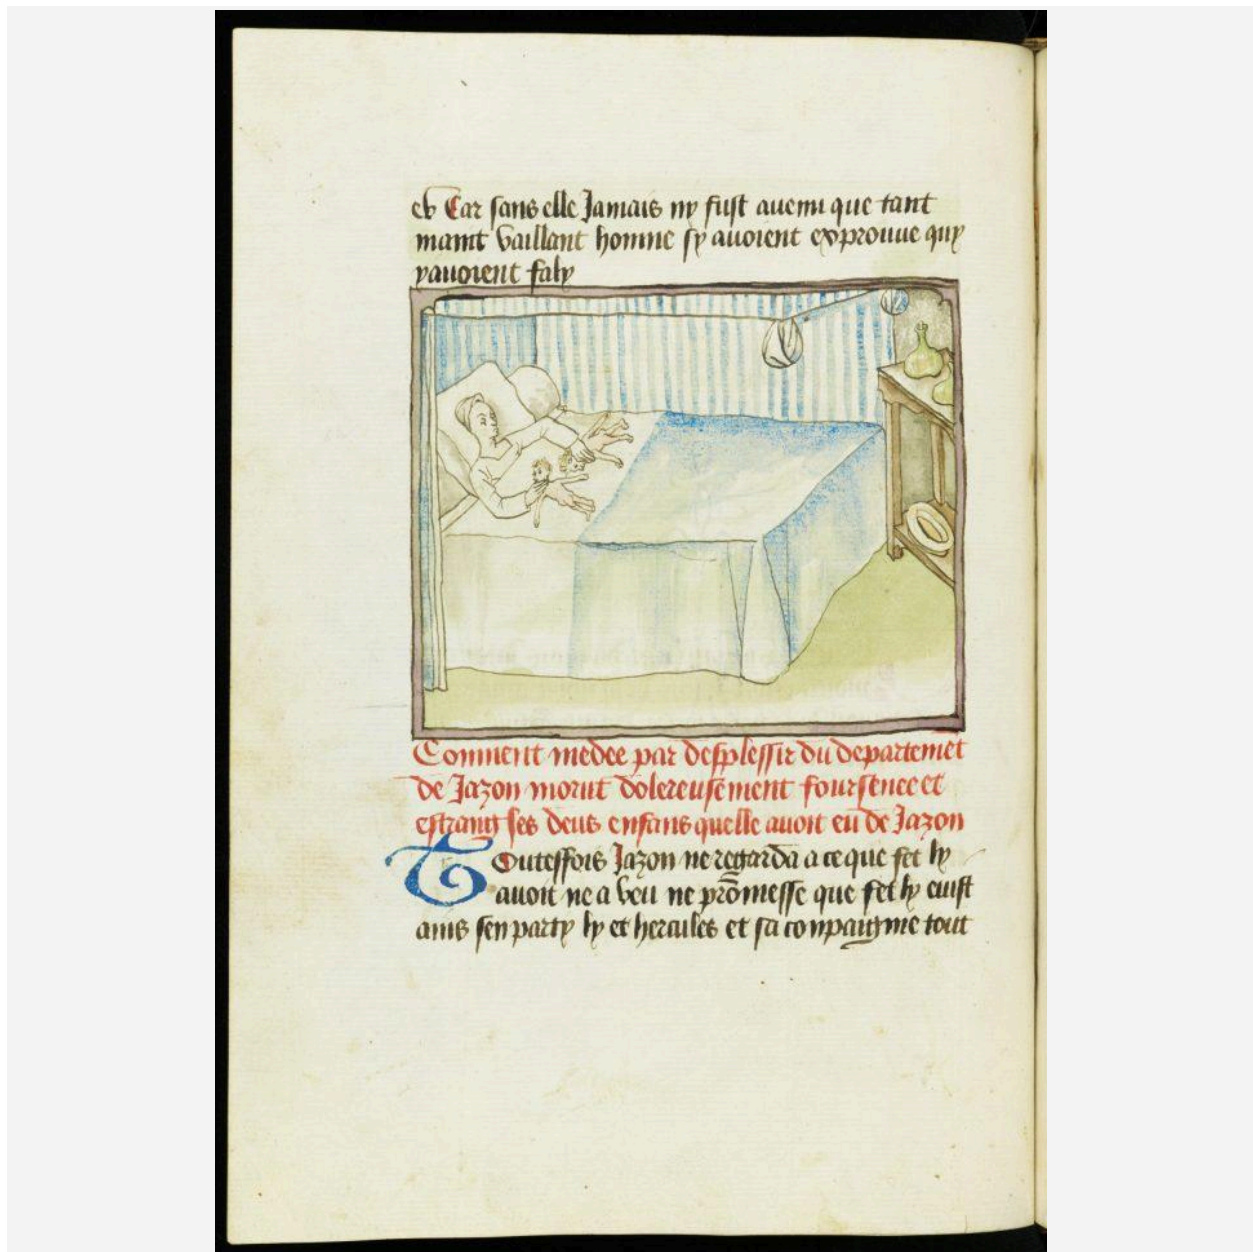 Car sans elle Jamais ny fust avenu que tant
maint vaillant homme sy avoient exprouve quy
y avoient faly
Comment medee par desplessir du departemēt
de Jazon morut dolereusement foursenee et
estrang ses deus enfans quelle avoit eu de Jazon
Toutesfois Jazon ne regarda a ce que fet ly
avoit ne a veu ne prōmesse que fet ly euist
ains sen party ly et hercules et sa conpaignie tout